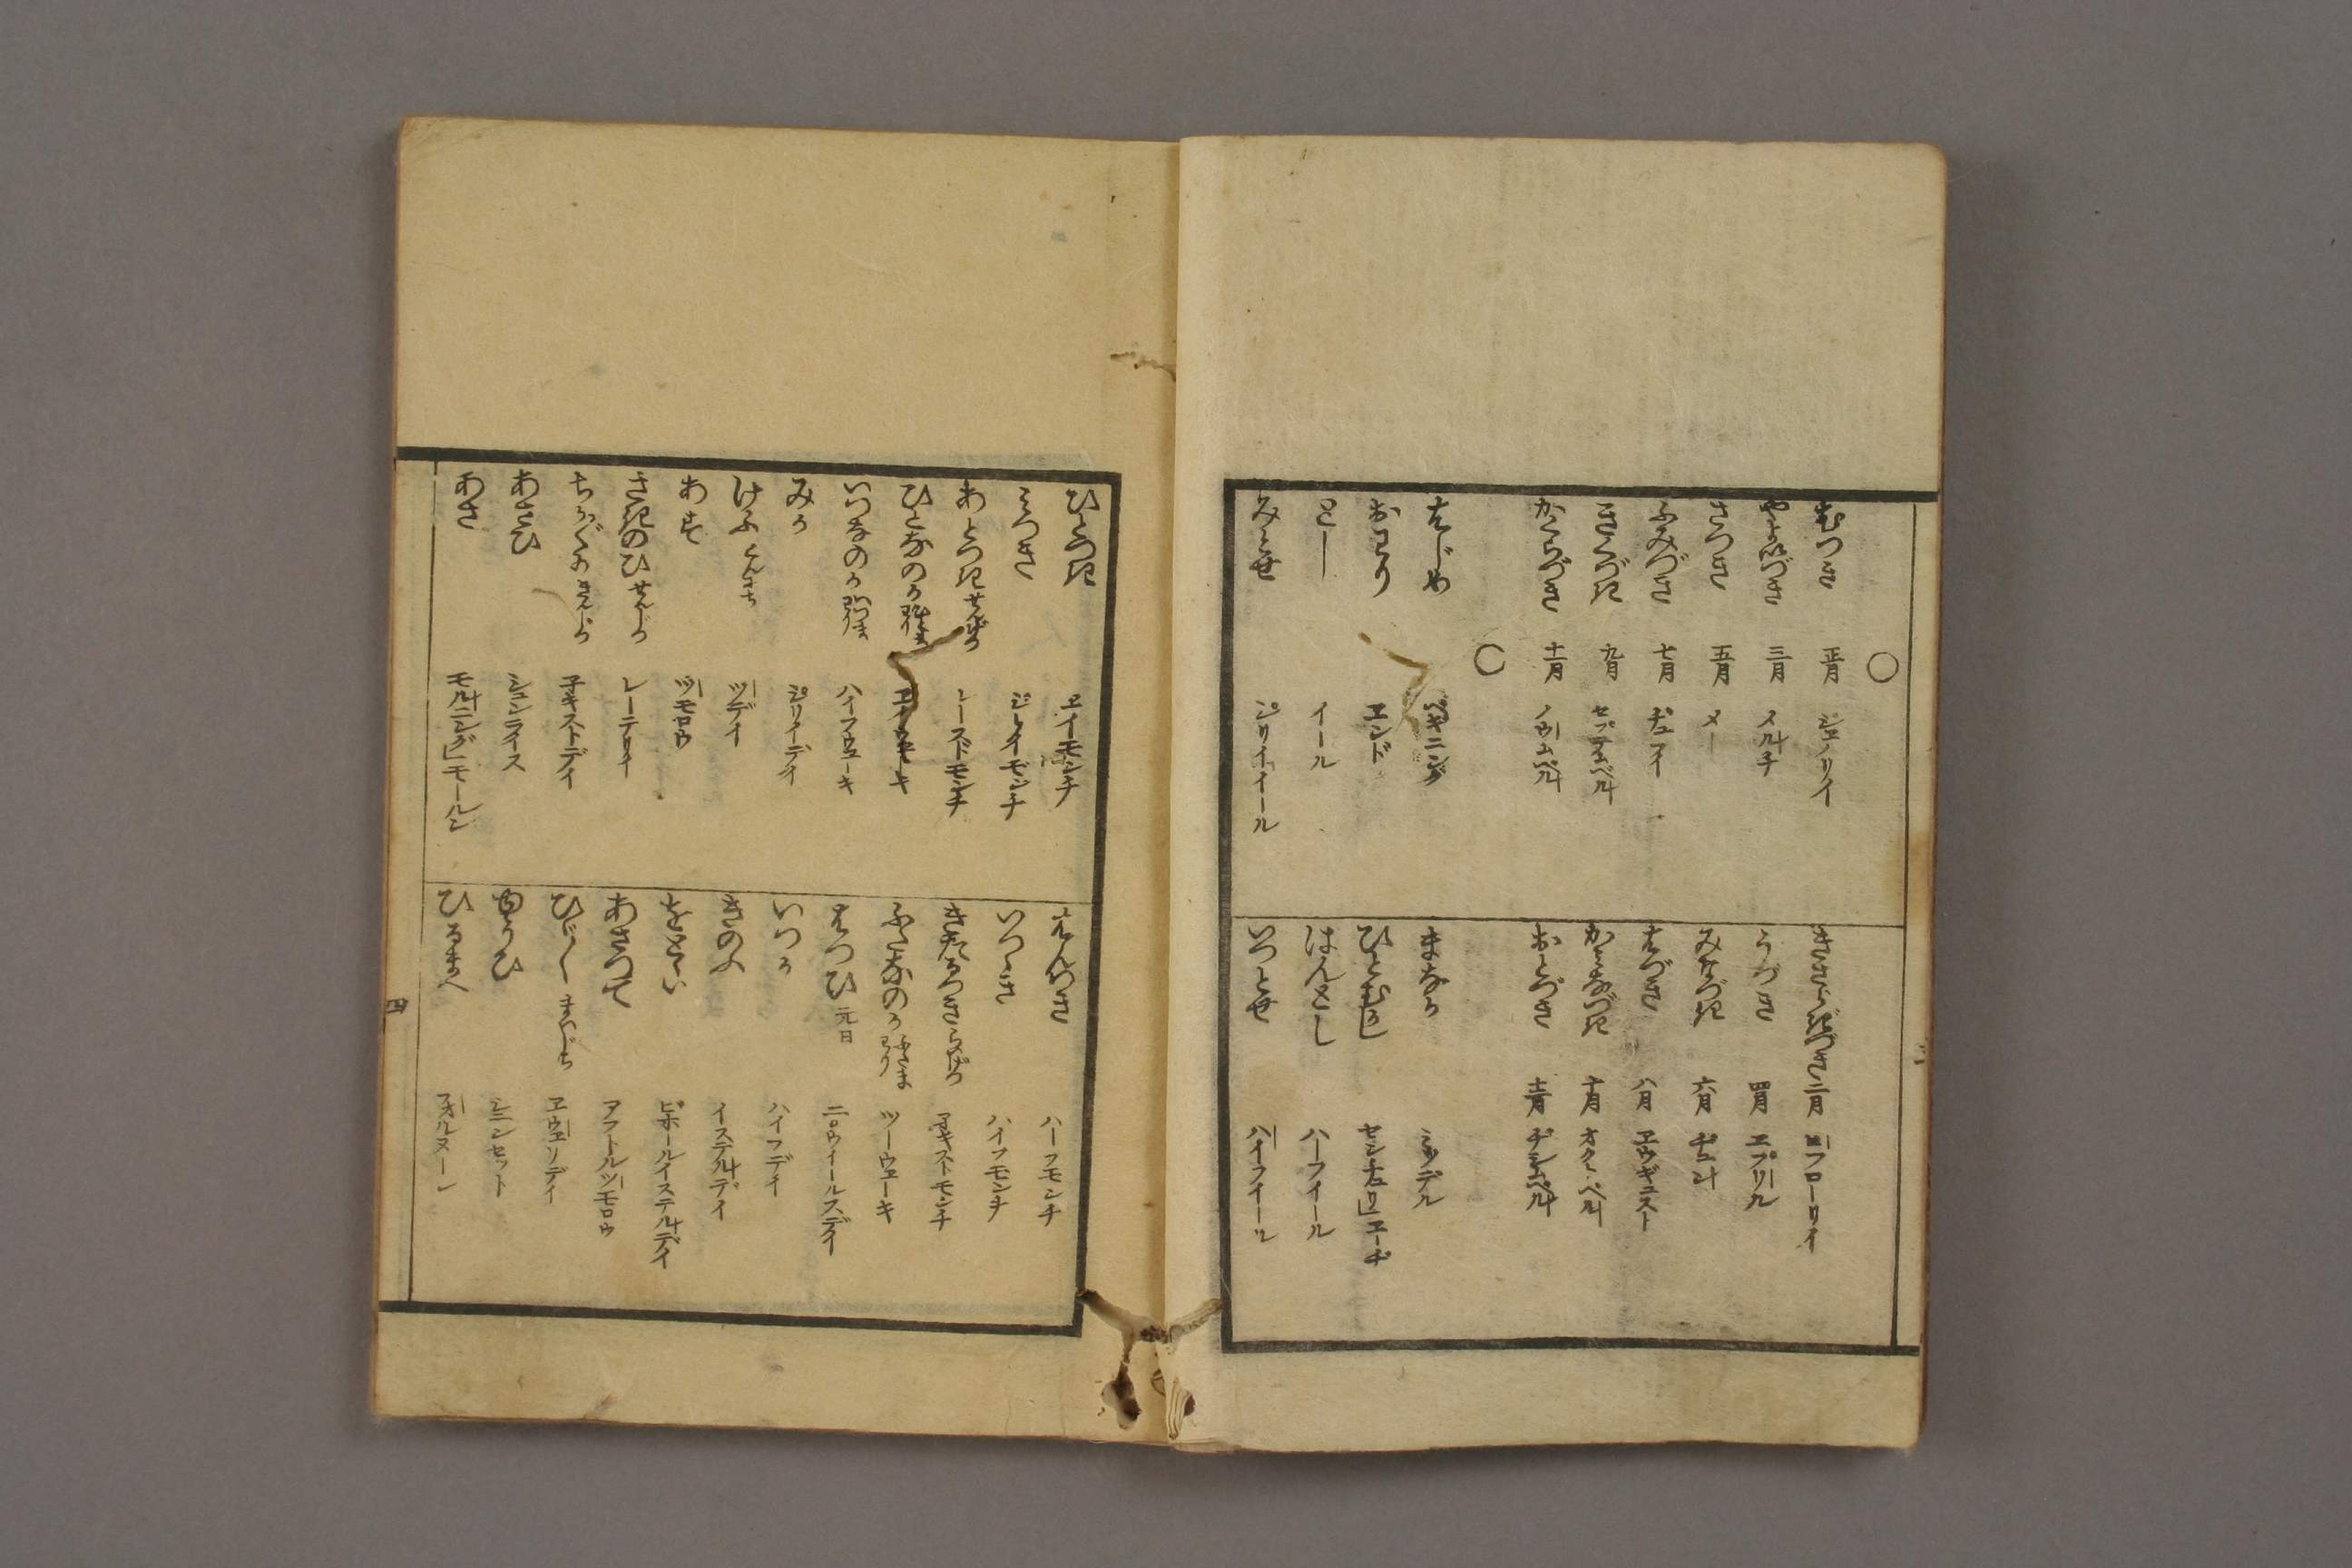 〇
むつき 正月 ジェノリイ
きさらぎづき 二月 ヒフローリイ
やよいづき 三月 メルチ
うづき 四月 エプリル
さつき 五月 メー
みなづき 六月 ヂュン
ふみづき 七月 ヂュライ
はづき 八月 エウギュスト
きくづき 九月 セプテムベル
かみなづき 十月 オクトベル
かぐらづき 十一月 ノウムベル
おとづき 十二月 ヂシムベル
〇
はじめ ベギニング
まなか ミッデル
おわり エンド
ひとむかし センチュリ」エーヂ
とし イール
はんとし ハーフイール
みとせ ジリイイール
いつとせ ハイフイール
ひとつき エイモンチ
はんつき ハーフモンチ
みつき ジレイモンチ
いつゝき ハイフモンチ
あとつき せんげつ レースドモンチ
きたるつき らいげつ ネキストモンチ
ひとなのか ひとまわり エイウエーキ
ふたなのか ふたまわり ツーウエーキ
いつなのか いつまわり ハイフウエーキ
はつひ 元日 ニウイールスデイ
みか ジリイデイ
いつか ハイフデイ
けふ こんにち ツデイ
きのふ イステルデイ
あす ツモロウ
をとゝい ビホールイステルデイ
さきのひ せんじつ レーテリイ
あさつて アフトルツモロウ
ちかぐ きんじつ ネキストデイ
ひゞ まいにち エウエリデイ
あさひ シュンライス
ゆうひ シュンセット
あさ モルニング」モールン
ひるまへ フオルヌーン
四